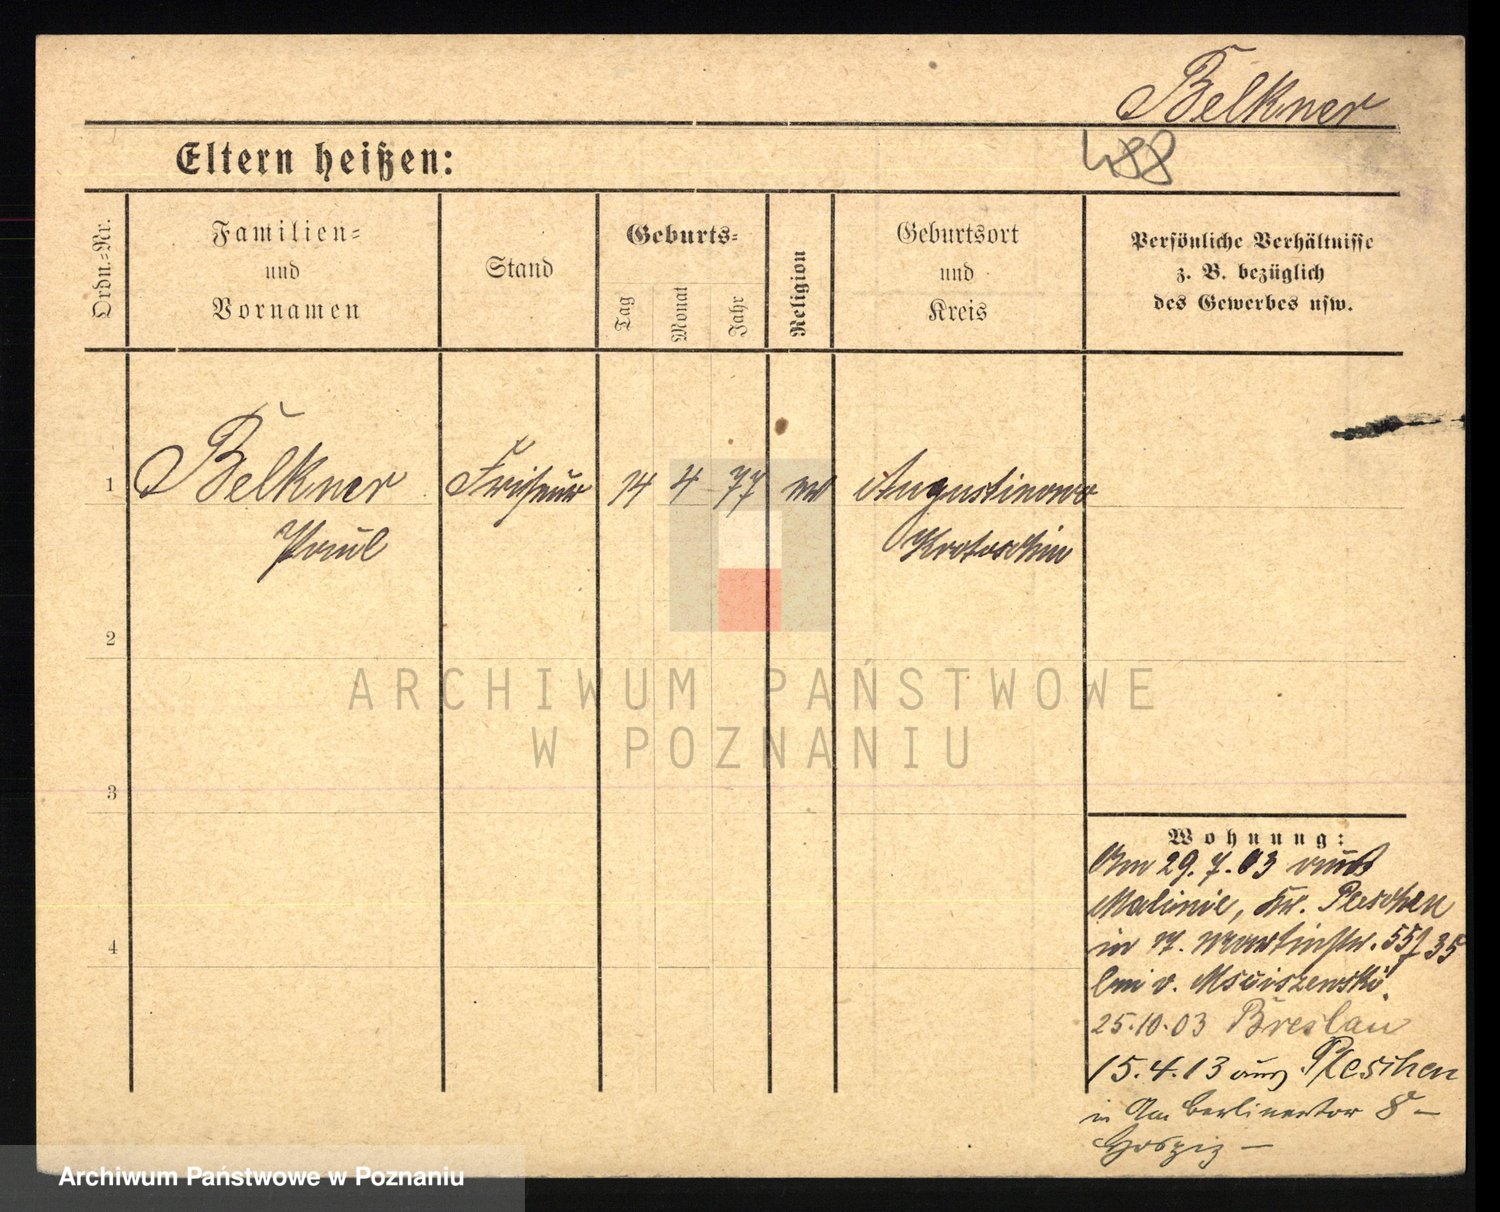 Belkner
488
Eltern heißen:
Ordn.-Nr.
Familien-
und
Vornamen
Stand
Geburts-
Tag
Monat
Jahr
Religion
Geburtsort
und
Kreis
Persönliche Verhältnisse
z. B. bezüglich
des Gewerbes usw.
1
Belkner
Paul
Friseur
14
4
77
ev
Augustinowo
Krotoschin
2
3
4
Wohnung:
Am 29.7.03 aus
Malinie, Kr. Pleschen
in St. Martinstr. 55/35
bei v.
25.10.03 Breslau
15.4.13 aus Pleschen
in Am Berlinertor 8 –
ARCHIWUM PAŃSTWOWE
W POZNANIU
Archiwum Państwowe w Poznaniu